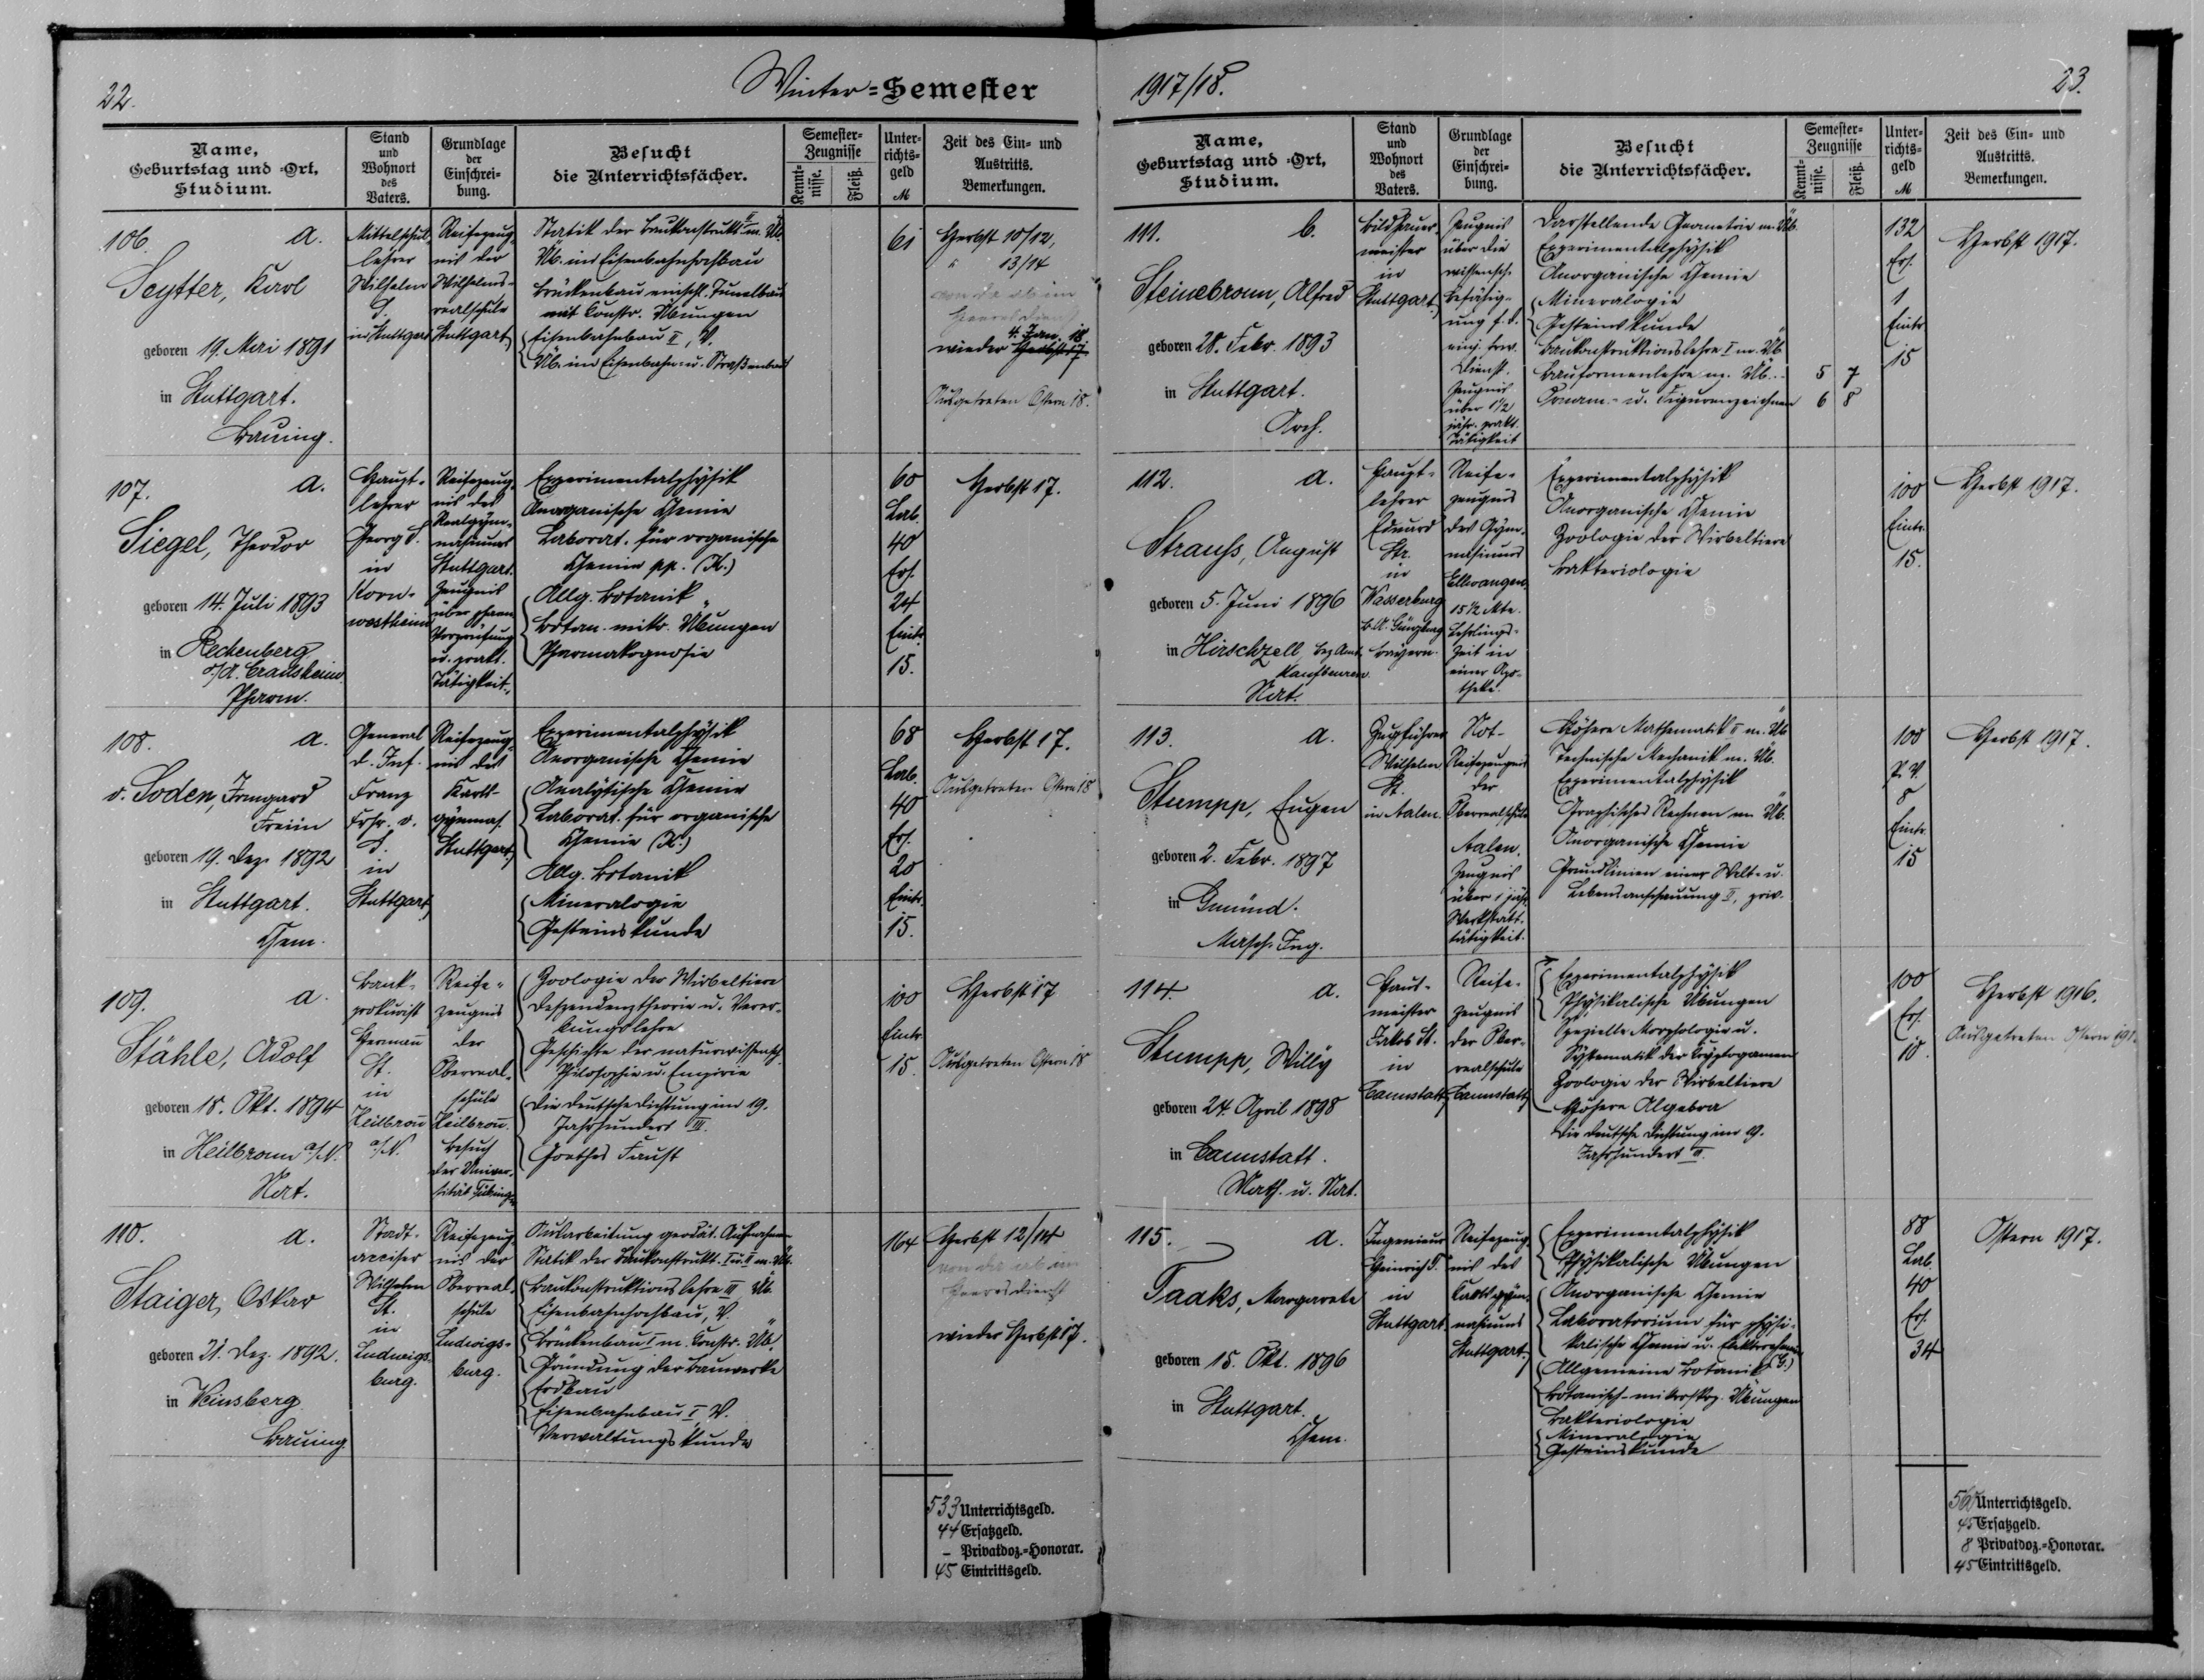 22.
Winter-Semester
Name,
Geburtstag und -Ort,
Studium.
Stand
und
Wohnort
des
Vaters.
Grundlage
der
Einschrei-
bung.
Besucht
die Unterrichtsfächer.
Semester-
Zeugnisse
Kennt-
nisse.
Fleiß.
Unter-
richts-
geld
M
Zeit des Ein- und
Austritts.
Bemerkungen.
106. a.
Seytter, Karl
geboren 19. Mai 1891
in Stuttgart.
Bauing.
Mittelschul-
lehrer
Wilhelm
S.
in Stuttgart
Reifezeug-
nis der
Wilhelms-
realschule
Stuttgart
Statik der Baukonstrukt. II m. Üb.
Üb. im Eisenbahnhochbau
Brückenbau einschl. Tunnelbau
mit Constr. Übungen
Eisenbahnbau II, V.
Üb. im Eisenbahn- u. Straßenbau
61
Herbst 10/12,
" 13/14
von da ab im
Heeresdienst
4. Jan. 18
wieder Herbst 17
Ausgetreten Ostern 18.
107. a.
Siegel, Theodor
geboren 14. Juli 1893
in Rechenberg
O/A. Crailsheim.
Pharm.
Haupt-
lehrer
Georg S.
in
Korn-
westheim
Reifezeug-
nis des
Realgym-
nasiums
Stuttgart.
Zeugnis
über pharm.
Vorprüfung
u. prakt.
Tätigkeit.
Experimentalphysik
Anorganische Chemie
Laborat. für organische
Chemie pp. (K.)
Allg. Botanik
Botan. mikr. Übungen
Pharmakognosie
60
Lab.
40
Ers.
24
Eintr.
15.
Herbst 17.
108. a.
v. Soden, Irmgard
Freiin
geboren 19. Dez. 1892
in Stuttgart.
Chem.
General
d. Inf.
Franz
Frhr. v.
S.
in
Stuttgart
Reifezeug-
nis des
Karls-
gymnas.
Stuttgart
Experimentalphysik
Anorganische Chemie
Analytische Chemie
Laborat. für organische
Chemie (K.)
Allg. Botanik
Mineralogie
Gesteinskunde
68
Lab.
40
Ers.
20
Eintr.
15.
Herbst 17.
Ausgetreten Ostern 18
109. a.
Stähle, Adolf
geboren 18. Okt. 1894
in Heilbronn a/N.
Nat.
Bank-
prokurist
Hermann
St.
in
Heilbronn
a/N.
Reife-
zeugnis
der
Oberreal-
schule
Heilbronn.
Besuch
der Univer-
sität Tübingen
Zoologie der Wirbeltiere
Deszendenztheorie u. Verer-
bungslehre
Geschichte der naturwissensch.
Philosophie u. Empirie
Die deutsche Dichtung im 19.
Jahrhundert III.
Goethes Faust
100
Eintr.
15.
Herbst 17
Ausgetreten Ostern 18
110. a.
Staiger, Oskar
geboren 21. Dez. 1892.
in Weinsberg
Bauing.
Stadt-
acciser
Wilhelm
St.
in
Ludwigs-
burg.
Reifezeug-
nis der
Oberreal-
schule
Ludwigs-
burg.
Ausarbeitung geodät. Aufnahmen
Statik der Baukonstrukt. I u. II m. Üb.
Baukonstruktionslehre III, Üb.
Eisenbahnhochbau, V.
Brückenbau I m. Constr. Üb.
Gründung der Bauwerke
Erdbau
Eisenbahnbau I, V.
Verwaltungskunde
164
Herbst 12/14
von da ab im
Heeresdienst
wieder Herbst 17.
533 Unterrichtsgeld.
44 Ersatzgeld.
- Privatdoz.-Honorar.
45 Eintrittsgeld.
1917/18.
23.
Name,
Geburtstag und -Ort,
Studium.
Stand
und
Wohnort
des
Vaters.
Grundlage
der
Einschrei-
bung.
Besucht
die Unterrichtsfächer.
Semester-
Zeugnisse
Kennt-
nisse.
Fleiß.
Unter-
richts-
geld
M
Zeit des Ein- und
Austritts.
Bemerkungen.
111. b.
Steinebronn, Alfred
geboren 28. Febr. 1893
in Stuttgart.
Arch.
Bildhauer-
meister
in
Stuttgart
Zeugnis
über die
wissensch.
Befähig-
ung f. d.
einj. frw.
Dienst.
Zeugnis
über 1 1/2
jähr. prakt.
Tätigkeit
Darstellende Geometrie m. Üb.
Experimentalphysik
Anorganische Chemie
Mineralogie
Gesteinskunde
Baukonstruktionslehre I m. Üb
Bauformenlehre m. Üb. 5 7
Ornam.- u. Figurenzeichnen 6 8
132
Ers.
1
Eintr
15
Herbst 1917.
112. a.
Strauss, August
geboren 5. Juni 1896
in Hirschzell Bez. Amt.
Kaufbeuren.
Nat.
Haupt-
lehrer
Eduard
Str.
in
Wasserburg
B.A. Günzburg
Bayern.
Reife-
zeugnis
des Gym-
nasiums
Ellwangen.
15 1/2 Mte.
Lehrlings-
zeit in
einer Apo-
theke.
Experimentalphysik
Anorganische Chemie
Zoologie der Wirbeltiere
Bakteriologie
100
Eintr.
15.
Herbst 1917.
113. a.
Stumpp, Eugen
geboren 2. Febr. 1897
in Gmünd.
Masch. Ing.
Zugführer
Wilhelm
St.
in Aalen.
Not-
Reifezeugnis
der
Oberrealschule
Aalen.
Zeugnis
über 1 jähr.
Werkstatt-
tätigkeit.
Höhere Mathematik II m. Üb
Technische Mechanik m. Üb.
Experimentalphysik
Graphisches Rechnen m. Üb.
Anorganische Chemie
Grundlinien einer Welt- u.
Lebensanschauung II, priv.
100
P. V.
8
Eintr.
15
Herbst 1917.
114. a.
Stumpp, Willy
geboren 24. April 1898
in Cannstatt.
Math. u. Nat.
Haus-
meister
Jakob St.
in
Cannstatt
Reife-
zeugnis
der Ober-
realschule
Cannstatt
Experimentalphysik
Physikalische Übungen
Spezielle Morphologie u.
Systematik der Cryptogamen
Zoologie der Wirbeltiere
Höhere Algebra
Die deutsche Dichtung im 19.
Jahrhundert III.
100
Ers.
10.
Herbst 1916.
Ausgetreten Ostern 191
115. a.
Taaks, Margarete
geboren 15. Okt. 1896
in Stuttgart.
Chem.
Ingenieur
Heinrich T.
in
Stuttgart
Reifezeug-
nis des
Karlsgym-
nasiums
Stuttgart.
Experimentalphysik
Physikalische Übungen
Anorganische Chemie
Laboratorium für physi-
kalische Chemie u. Elektrochemie
Allgemeine Botanik
Botanisch-mikroskop. Übungen
Bakteriologie
Mineralogie
Gesteinskunde
88
Lab.
40
Ers.
34
Ostern 1917.
Unterrichtsgeld.
45 Ersatzgeld.
8 Privatdoz.-Honorar.
45 Eintrittsgeld.